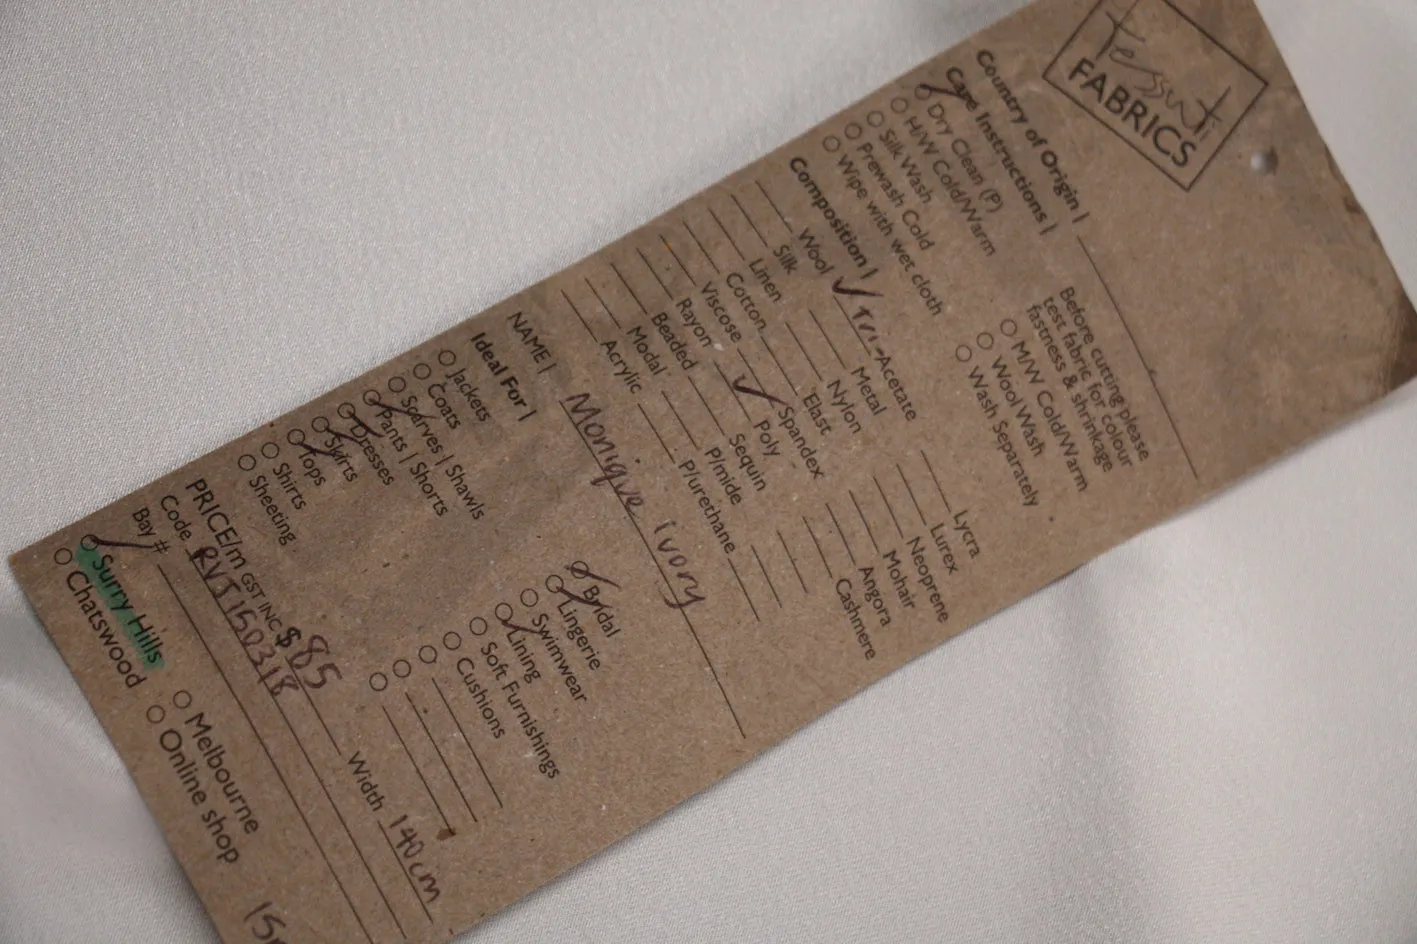 Tessuti
FABRICS
Country of Origin |
Care Instructions |
Dry Clean (P)
H/W Cold/Warm
Silk Wash
Prewash Cold
Wipe with wet cloth
Before cutting please
test fabric for colour
fastness & shrinkage
M/W Cold/Warm
Wool Wash
Wash Separately
Composition |
Wool
Silk
Linen
Cotton
Viscose
Rayon
Beaded
Modal
Acrylic
Tri-Acetate
Metal
Nylon
Elast
Spandex
Poly
Sequin
P/mide
P/urethane
Lycra
Lurex
Neoprene
Mohair
Angora
Cashmere
NAME | Monique Ivory
Ideal For |
Jackets
Coats
Scarves | Shawls
Pants | Shorts
Dresses
Skirts
Tops
Shirts
Sheeting
Bridal
Lingerie
Swimwear
Lining
Soft Furnishings
Cushions
PRICE/m GST INC $85 Width 140cm
Code RVJ150318
Bay#
Surry Hills
Chatswood
Melbourne
Online shop